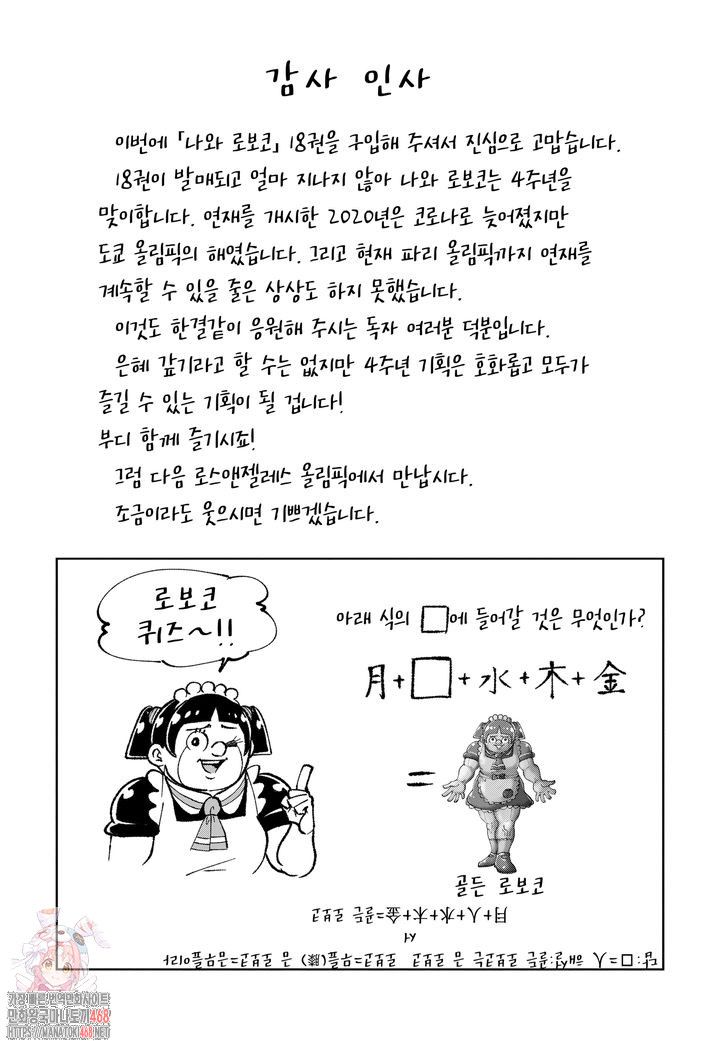 감사 인사
이번에 「나와 로보코」 18권을 구입해 주셔서 진심으로 고맙습니다.
18권이 발매되고 얼마 지나지 않아 나와 로보코는 4주년을
맞이합니다. 연재를 개시한 2020년은 코로나로 늦어졌지만
도쿄 올림픽의 해였습니다. 그리고 현재 파리 올림픽까지 연재를
계속할 수 있을 줄은 상상도 하지 못했습니다.
이것도 한결같이 응원해 주시는 독자 여러분 덕분입니다.
은혜 갚기라고 할 수는 없지만 4주년 기획은 호화롭고 모두가
즐길 수 있는 기획이 될 겁니다!
부디 함께 즐기시죠!
그럼 다음 로스앤젤레스 올림픽에서 만납시다.
조금이라도 웃으시면 기쁘겠습니다.
로보코
퀴즈~!!
아래 식의 □에 들어갈 것은 무엇인가?
月+□+水+木+金
=
골든 로보코
답:□=人 해설:골든 로보코는 금 로보코 로보코=무릎(膝) 금 로보코=금무릎이라
서
月+人+水+木+金=골든 로보코
가장빠른번역만화사이트
만화왕국마나토끼468
HTTPS://MANATOKI468.NET